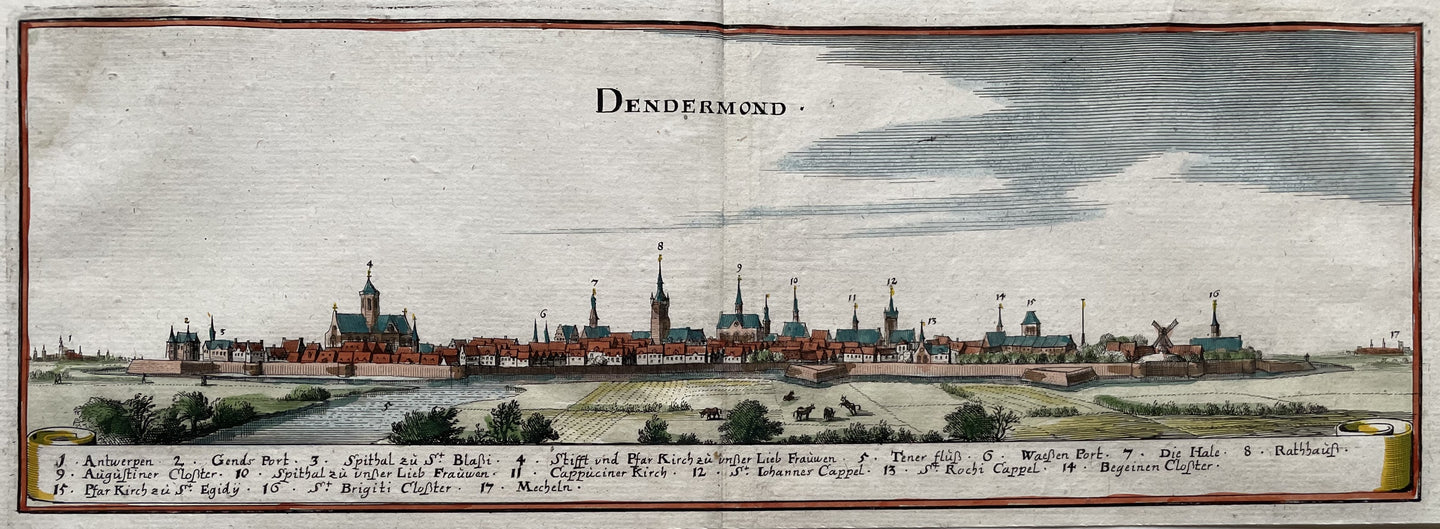 DENDERMOND ·
8
4
9
7
10
12
11
14
15
16
6
13
2
3
1
17
5
1 · Antwerpen 2 · Gends Port · 3 · Spithal zů S.t Blaßi · 4 · Stifft vnd Pfar Kirch zů vnßer Lieb Fraůwen · 5 · Tener flůß · 6 · Waeßen Port · 7 · Die Hale · 8 · Rathhaůß ·
9 · Augůstiner Cloßter · 10 · Spithal zů vnßer Lieb Fraůwen · 11 · Cappůciner Kirch 12 · S.t Iohannes Cappel · 13 · S.t Rochi Cappel · 14 · Begeinen Cloßter ·
15 · Pfar Kirch zů S.t Egidÿ · 16 · S.t Brigiti Cloßter · 17 · Mecheln ·